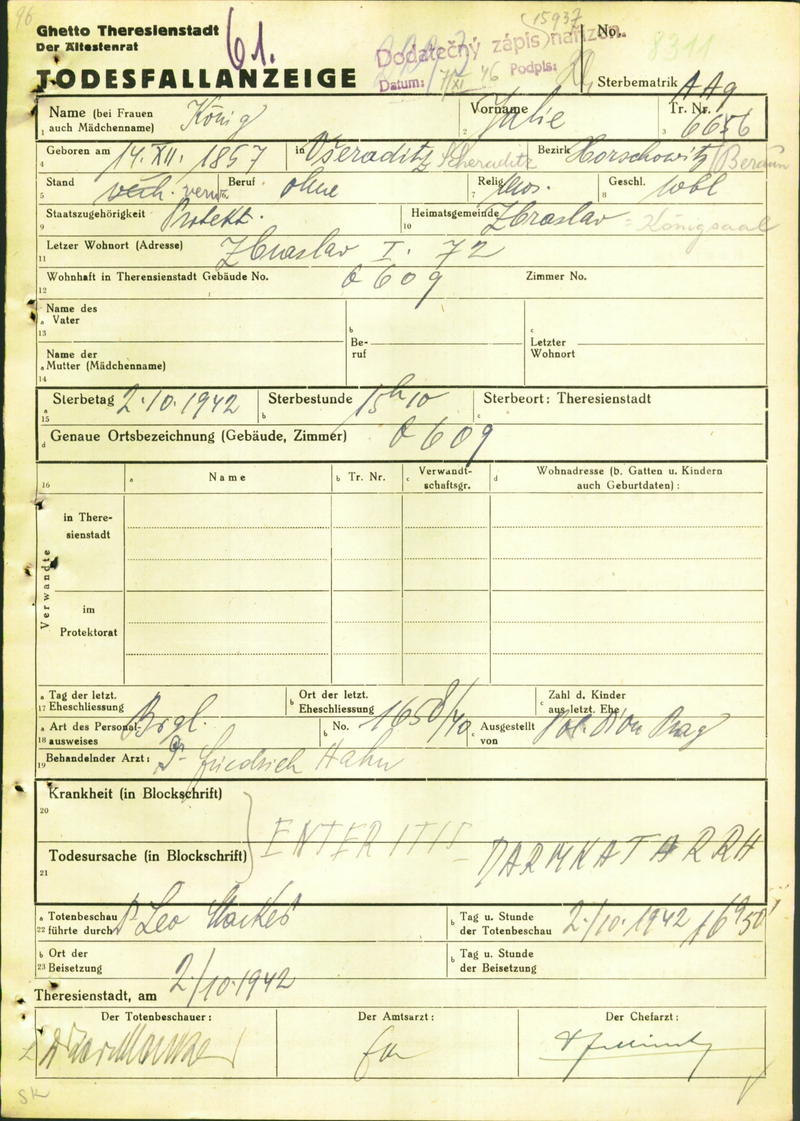 96
Ghetto Theresienstadt
Der Ältestenrat
61.
(15937)
No.
8311
Dodatečný zápis nařízen.
Datum: 7/XI 46 Podpis:
TODESFALLANZEIGE
Sterbematrik AAg
Name (bei Frauen auch Mädchenname) König
1
Vorname Julie
2
Tr. Nr. 6656
3
Geboren am 14. XII. 1857
4
in Všeraditz Scheraditz
Bezirk Horschowitz / Beraun
Stand verh. verw.
5
Beruf ohne
Relig. mos.
7
Geschl. wbl
8
Staatszugehörigkeit Protekt.
9
Heimatsgemeinde Zbraslav = Königsaal
10
Letzer Wohnort (Adresse) Zbraslav I. 72
11
Wohnhaft in Theresienstadt Gebäude No. 0609
Zimmer No.
12
Name des
a Vater
13
b
Beruf
c
Letzter
Wohnort
Name der
a Mutter (Mädchenname)
14
a Sterbetag 2.10.1942
15
Sterbestunde 15h10
b
Sterbeort: Theresienstadt
c
d Genaue Ortsbezeichnung (Gebäude, Zimmer) 0609
16
a Name
b Tr. Nr.
c Verwandtschaftsgr.
d Wohnadresse (b. Gatten u. Kindern
auch Geburtdaten) :
Verwandte
in Theresienstadt
im
Protektorat
a Tag der letzt.
17 Eheschliessung
b Ort der letzt.
Eheschliessung
c Zahl d. Kinder
aus letzt. Ehe
a Art des Personalausweises Brgl.
18
b No. 1650/40
c Ausgestellt von Pol. Dion Prag
Behandelnder Arzt: Dr. Friedrich Hahn
19
Krankheit (in Blockschrift)
20
ENTERITIS – DARMKATARRH
Todesursache (in Blockschrift)
21
a Totenbeschau
22 führte durch Dr Leo
b Tag u. Stunde
der Totenbeschau 2./10.1942 16h50'
b Ort der
23 Beisetzung
b Tag u. Stunde
der Beisetzung
Theresienstadt, am 2./10.1942
Der Totenbeschauer:
Der Amtsarzt:
Der Chefarzt:
SK